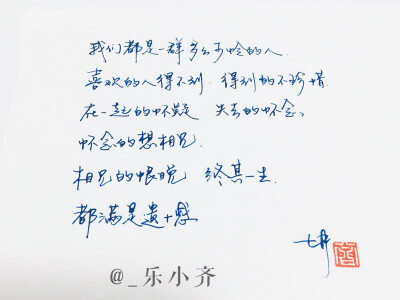 我们都是一群多么可怜的人.
喜欢的人得不到. 得到的不珍惜.
在一起的怀疑 失去的怀念、
怀念的想相见.
相见的恨晚 终其一生.
都满是遗憾
@_乐小齐